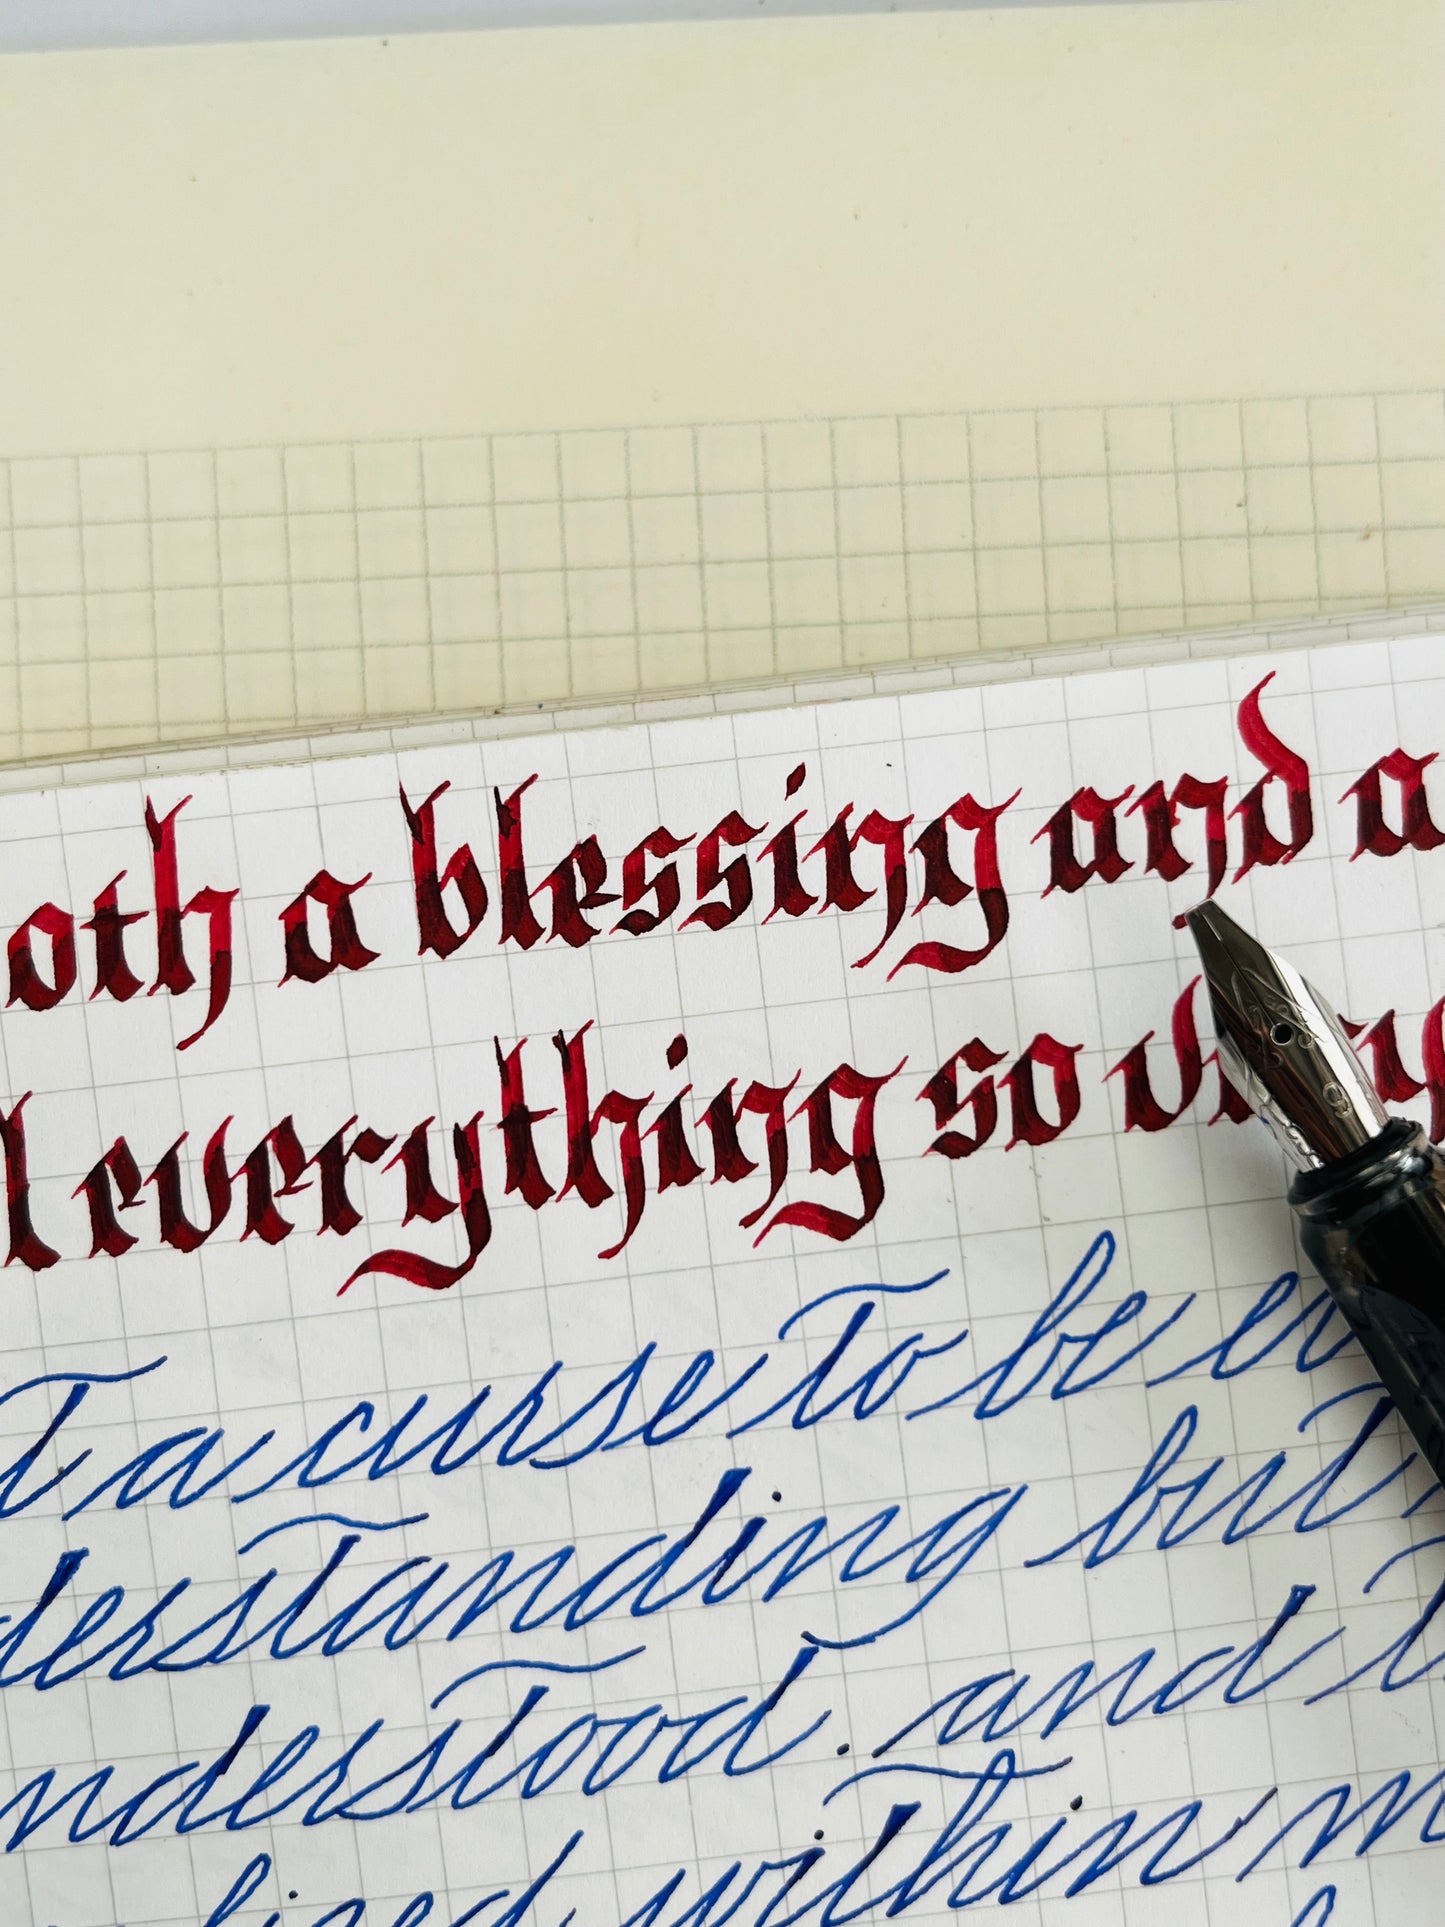 oth a blessing and a
l everything so very
T a curse to be ev
derstanding but
nderstood. and
lived within m